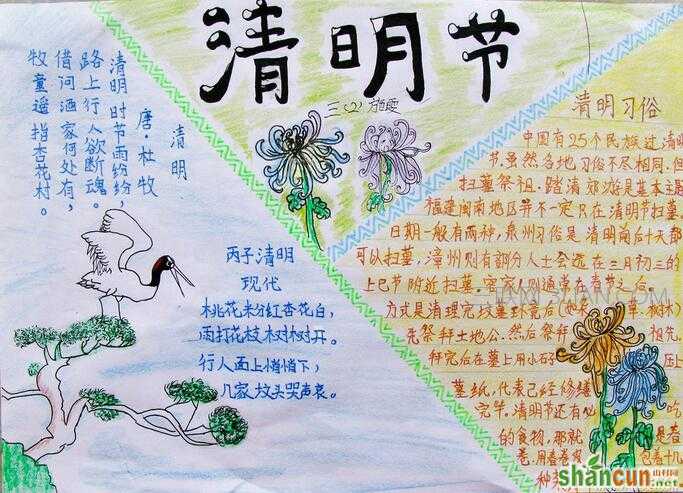 清明节
三(2)
清明
唐·杜牧
清明时节雨纷纷,
路上行人欲断魂。
借问酒家何处有,
牧童遥指杏花村。
丙子清明
现代
桃花粉红杏花白,
雨打花枝树树开。
行人面上悄悄下,
几家坟头哭声哀。
清明习俗
中国有25个民族过清明
节,虽然各地习俗不尽相同,但
扫墓祭祖、踏清郊游是基本主
福建闽南地区并不一定只在清明节扫墓,
日期一般有两种,泉州习俗是清明前后十天都
可以扫墓,漳州则有部分人士会选在三月初三的
上巳节附近扫墓,客家人则通常在春节之后。
方式是清理完坟墓环境后(如 草、树木)
先祭拜土地公,然后祭拜 祖先,
拜完后在墓上用小石 压上
墓纸,代表已经修缮
完毕。清明节还有必 吃
的食物,那就 是春
卷,用春卷皮 包着几
种
shancun
山村网
.net